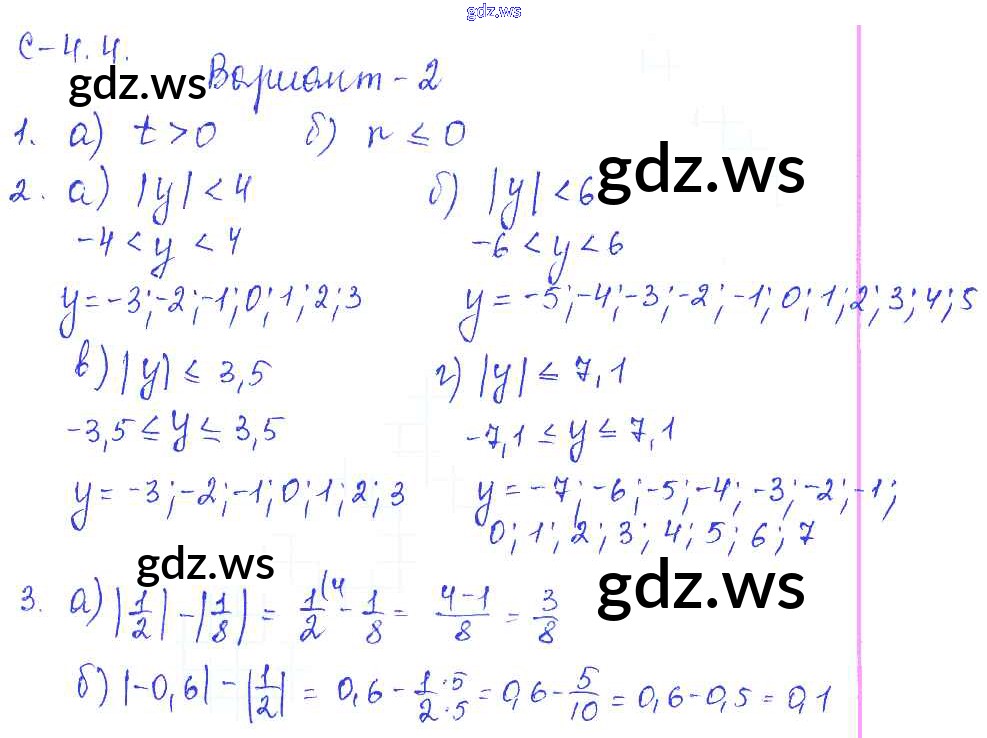 gdz.ws
С-4.4.
gdz.ws Вариант-2
1. а) t > 0 б) n ≤ 0
gdz.ws
2. а) |y| < 4 б) |y| < 6
-4 < y < 4 -6 < y < 6
y = -3; -2; -1; 0; 1; 2; 3 y = -5; -4; -3; -2; -1; 0; 1; 2; 3; 4; 5
в) |y| ≤ 3,5 г) |y| ≤ 7,1
-3,5 ≤ y ≤ 3,5 -7,1 ≤ y ≤ 7,1
y = -3; -2; -1; 0; 1; 2; 3 y = -7; -6; -5; -4; -3; -2; -1;
0; 1; 2; 3; 4; 5; 6; 7
gdz.ws gdz.ws
3. а) |1/2| - |1/8| = 1/2 (4 - 1/8 = 4-1/8 = 3/8
б) |-0,6| - |1/2| = 0,6 - 1·5/2·5 = 0,6 - 5/10 = 0,6 - 0,5 = 0,1